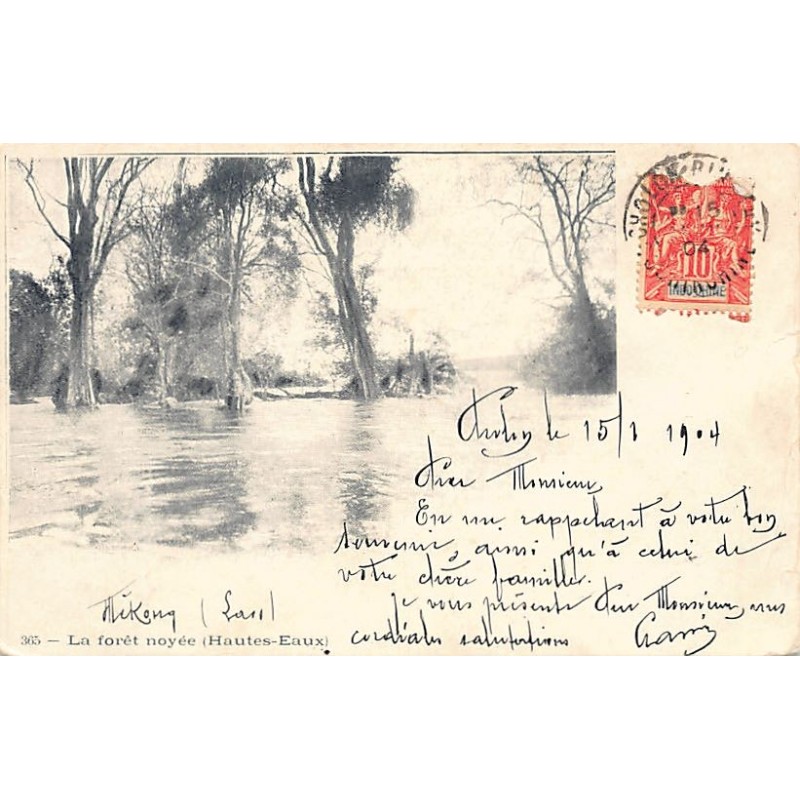 INDOCHINE
10
15
04
le 15/1 1904
Cher Monsieur,
En me rappelant à votre bon
souvenir, ainsi qu'à celui de
votre chère famille.
Je vous présente Cher Monsieur, mes
cordiales salutations
Mékong (Laos)
365 — La forêt noyée (Hautes-Eaux)